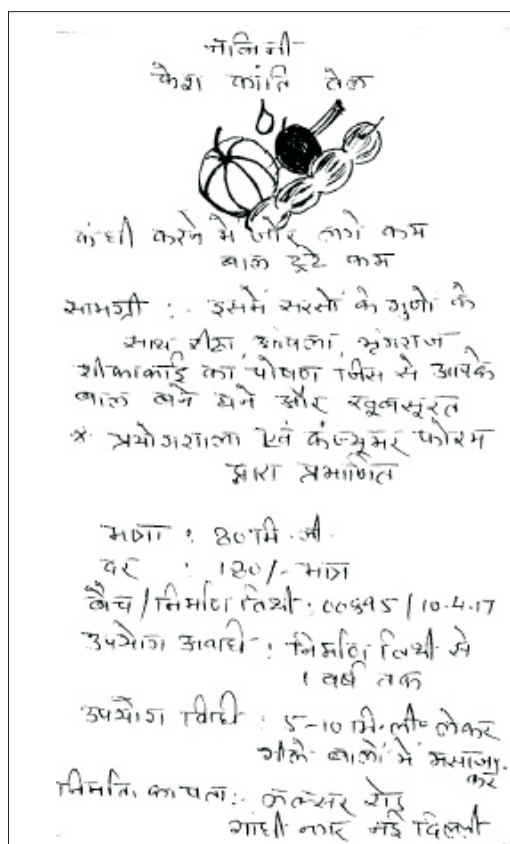 नलिनी
केश कांति तेल
कंघी करने में जोर लगे कम
बाल टूटे कम
सामग्री :- इसमें सरसों के गुणों के
साथ रीठा, आंवला, भृंगराज
शीकाकाई का पोषण जिस से आपके
बाल बने घने और खूबसूरत
* प्रयोगशाला एवं कंज्यूमर फोरम
द्वारा प्रमाणित
मात्रा : 80 मि.ली.
दर : 180/- मात्र
बैच/निर्माण तिथी : 00695/10.4.17
उपयोग अवधी : निर्माण तिथी से
1 वर्ष तक
उपयोग विधी : 5-10 मि.ली. लेकर
गीले बालों में मसाज
करें
का पता :- रोड
गांधी नगर नई दिल्ली